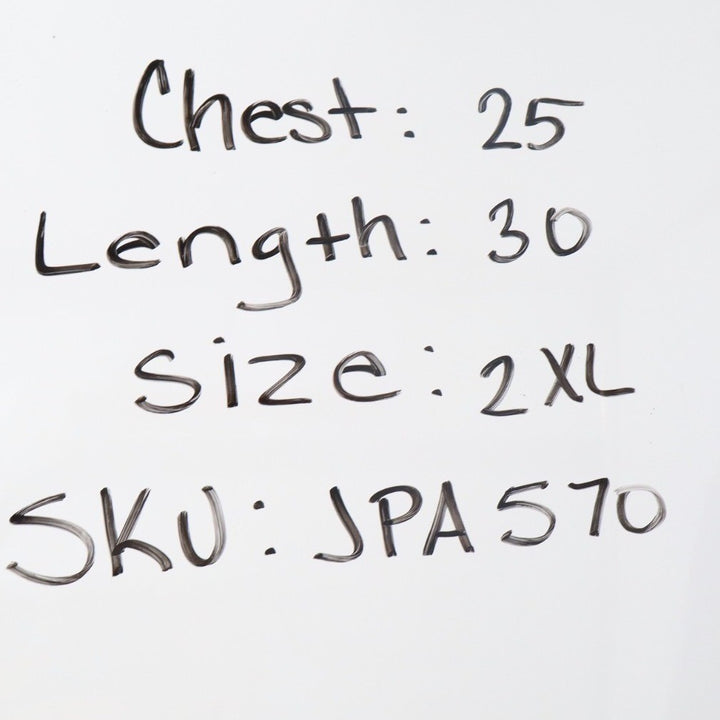 Chest: 25
Length: 30
Size: 2XL
SKU: JPA570